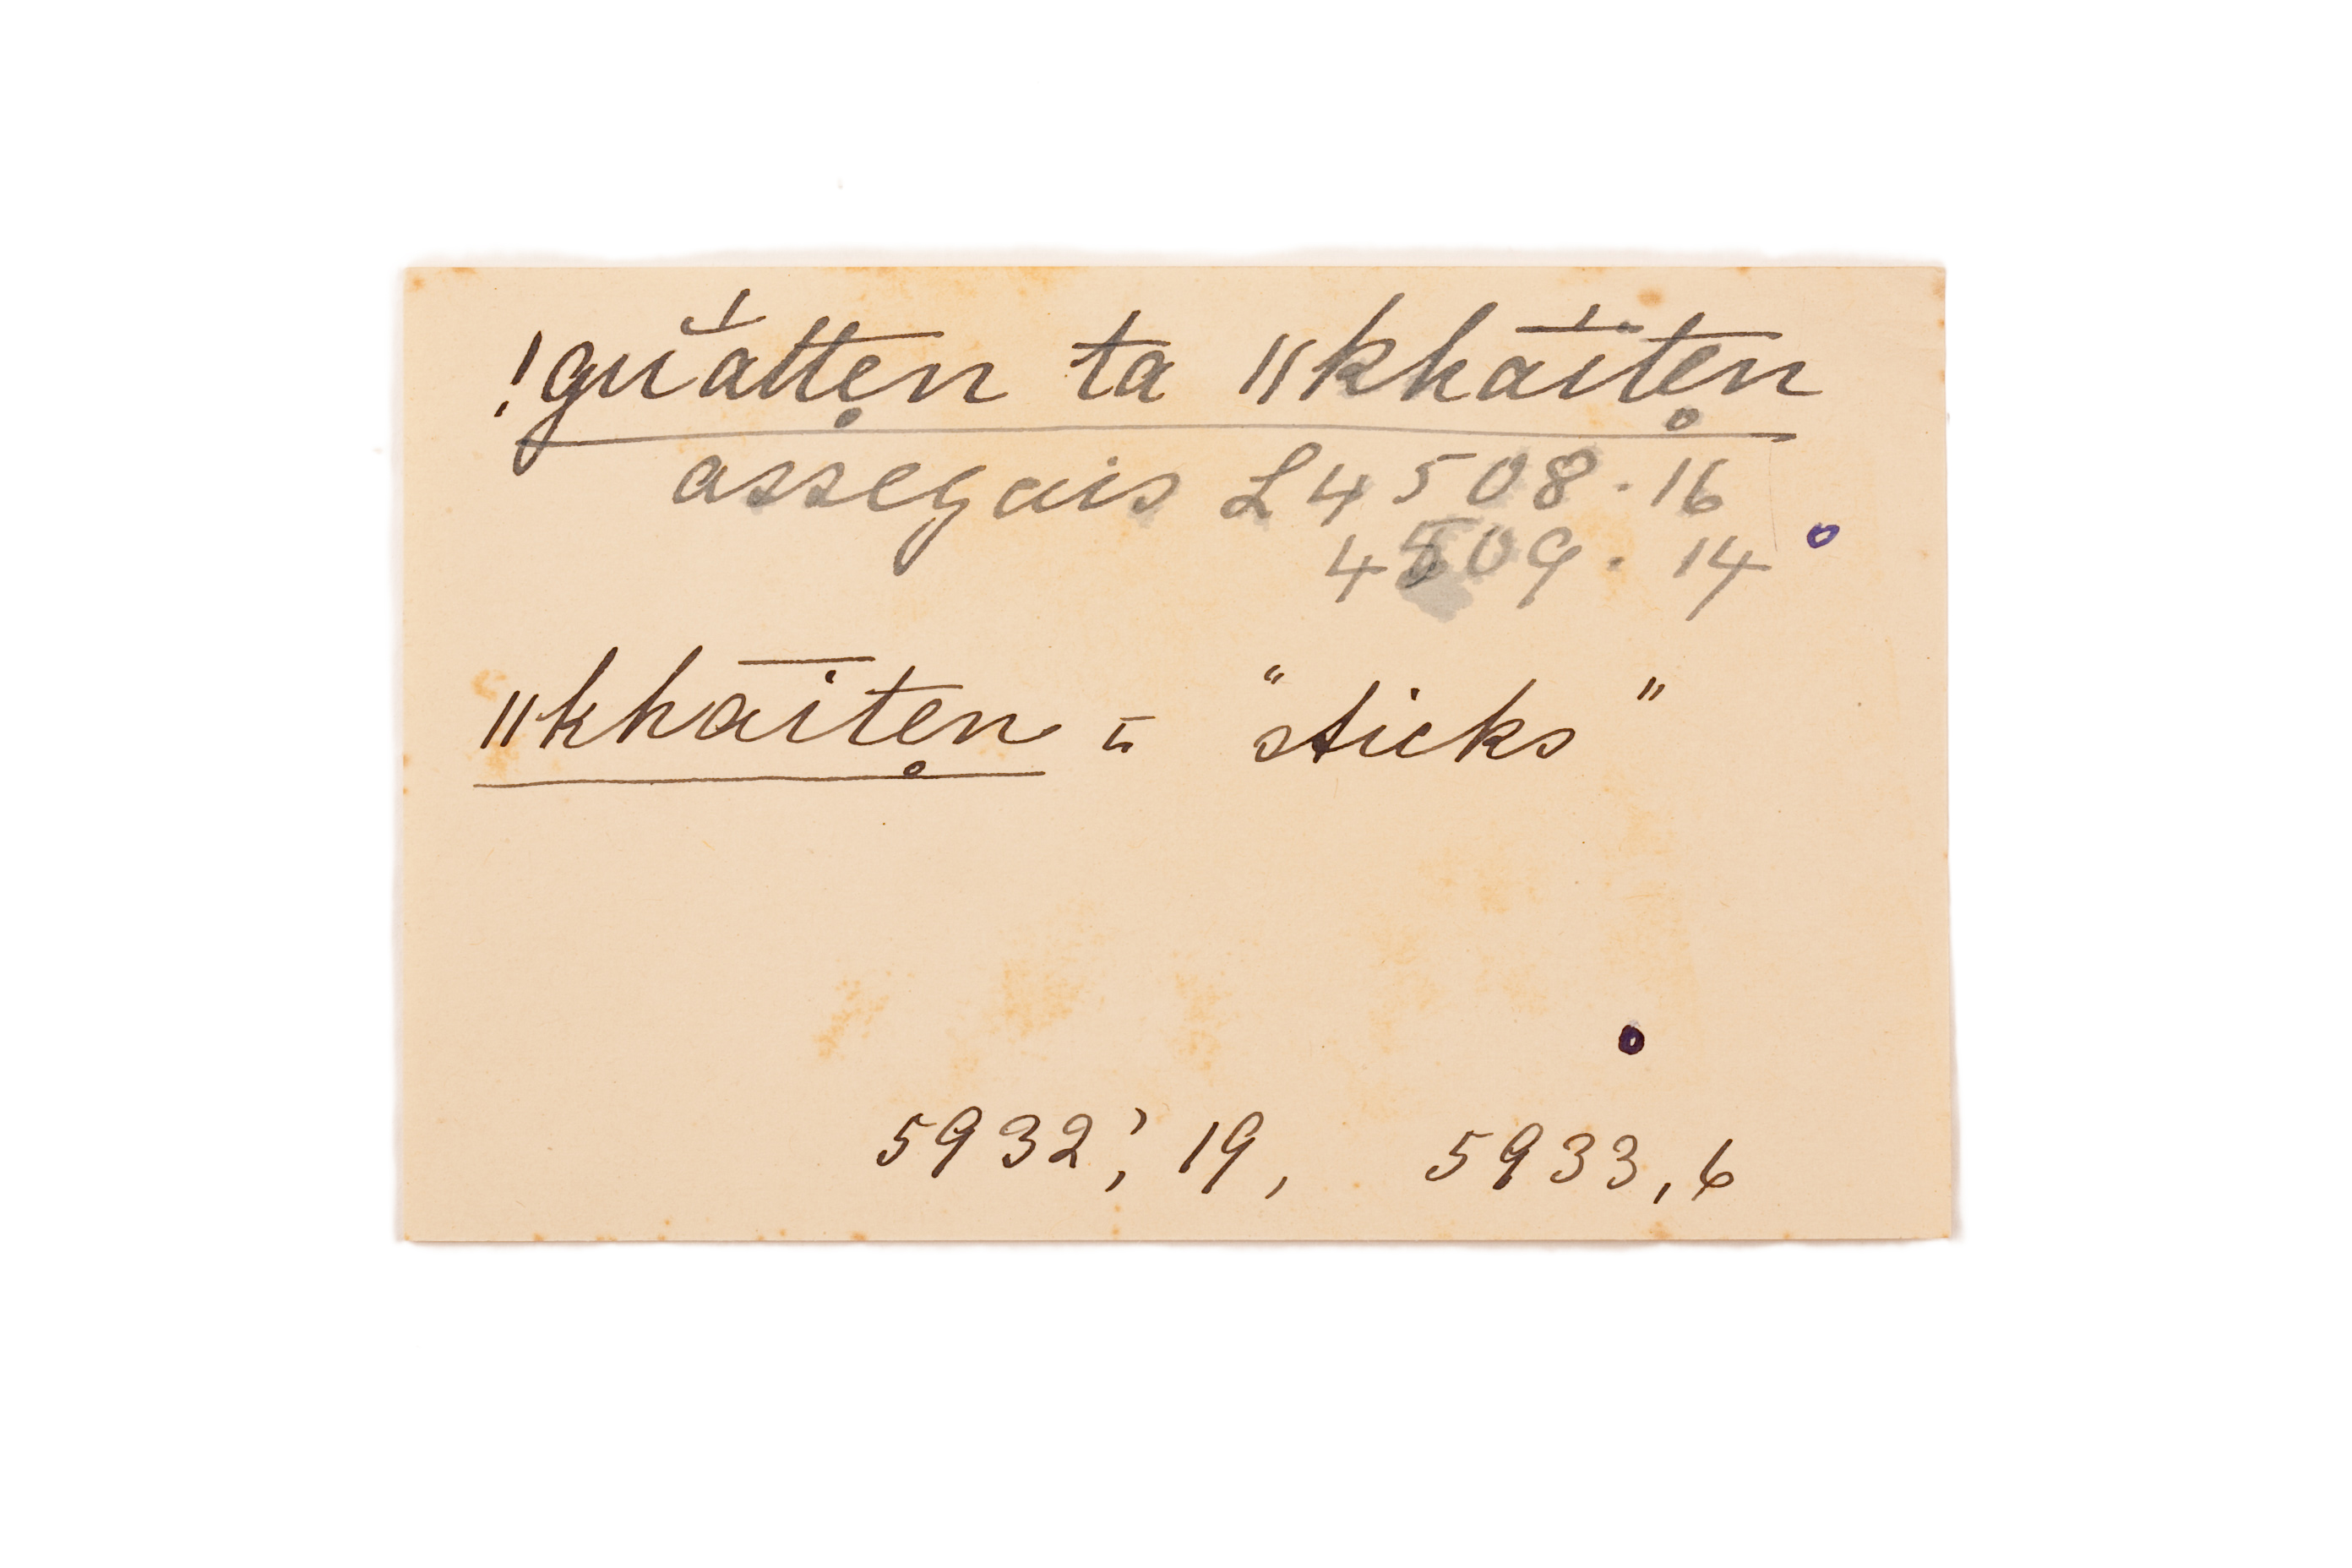 !gŭ́attẹn ta ǁkhā́itẹn
assegais L 4508.16
4509.14
ǁkhāitẹn = "sticks"
5932', 19, 5933, 6